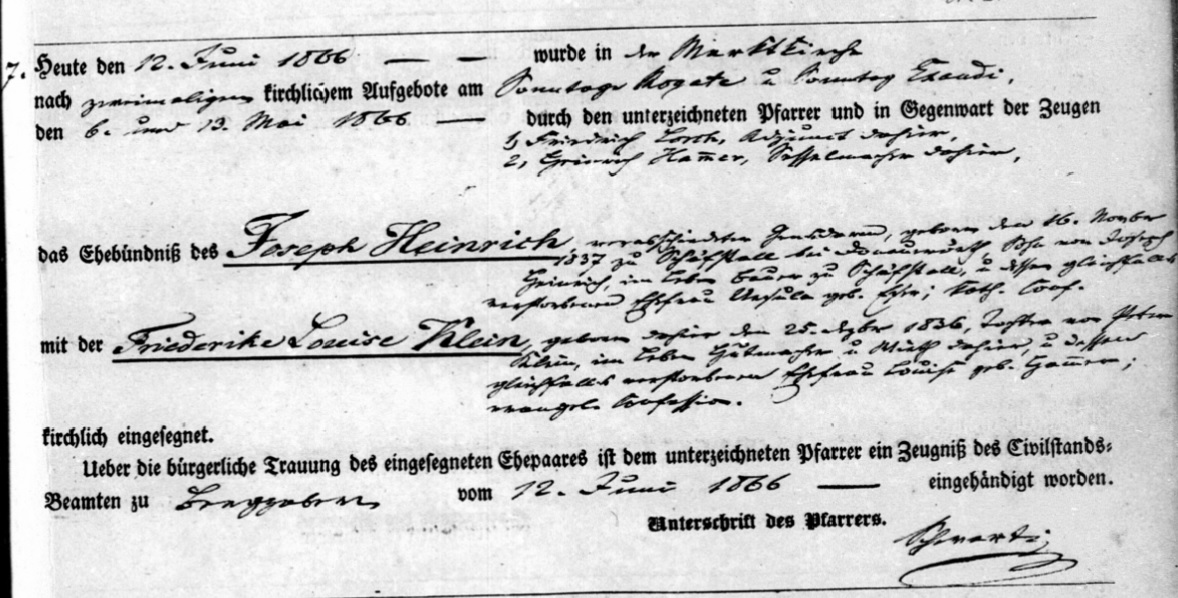 7. Heute den 12. Juni 1866 — — wurde in der Marktkirche
nach zweimaligem kirchlichem Aufgebote am Sonntage Rogate u Sonntag Exaudi,
den 6. und 13. Mai 1866 — durch den unterzeichneten Pfarrer und in Gegenwart der Zeugen
1, Friedrich Adjunct dahier,
2, Heinrich Ham̄er, Sesselmacher dahier,
das Ehebündniß des Joseph Heinrich, verabschiedeten Gendarm, geboren den 16. Novber
1837 zu Schäfstall bei Donauwörth, Sohn von Joseph
Heinrich, im Leben Bauer zu Schäfstall, u dessen gleichfalls
verstorbenen Ehefrau Ursula geb. kath. Conf.
mit der Friederike Louise Klein, geboren dahier den 25. 1836, Tochter von Peter
Klein, im Leben Hutmacher u Wirth dahier, u dessen
gleichfalls verstorbenen Ehefrau Louise geb. Ham̄er;
evangel. Confession.
kirchlich eingesegnet.
Ueber die bürgerliche Trauung des eingesegneten Ehepaares ist dem unterzeichneten Pfarrer ein Zeugniß des Civilstands-
Beamten zu Bergzabern vom 12. Juni 1866 — eingehändigt worden.
Unterschrift des Pfarrers.